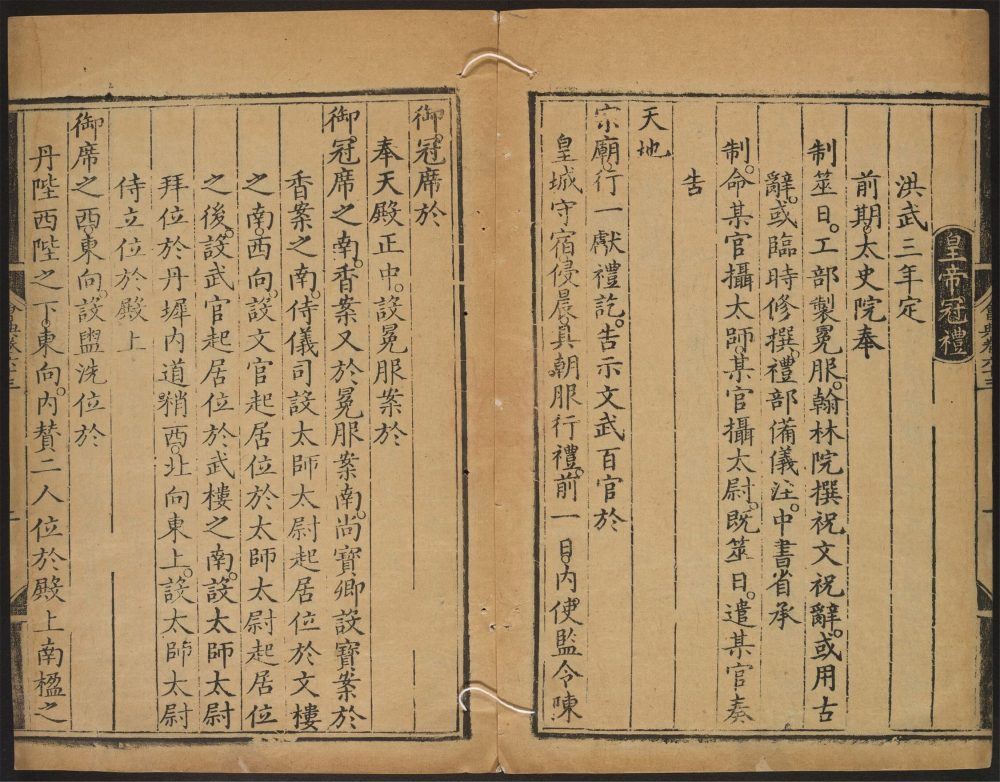 皇帝冠禮
洪武三年定
前期。太史院奉
制筮日。工部製冕服。翰林院撰祝文祝辭。或用古
辭。或臨時修撰。禮部備儀注。中書省承
制。命某官攝太師。某官攝太尉。既筮日。遣某官奏
告
天地
宗廟。行一獻禮訖。告示文武百官於
皇城守宿侵晨具朝服行禮。前一日。內使監令陳
御冠席於
奉天殿正中。設冕服案於
御冠席之南。香案又於冕服案南。尚寶卿設寶案於
香案之南。侍儀司設太師太尉起居位於文樓
之南。西向。設文官起居位於太師太尉起居位
之後。設武官起居位於武樓之南。設太師太尉
拜位於丹墀內道稍西。北向東上。設太師太尉
侍立位於殿上
御席之西。東向。設盥洗位於
丹陛西陛之下。東向。內贊二人位於殿上南楹之